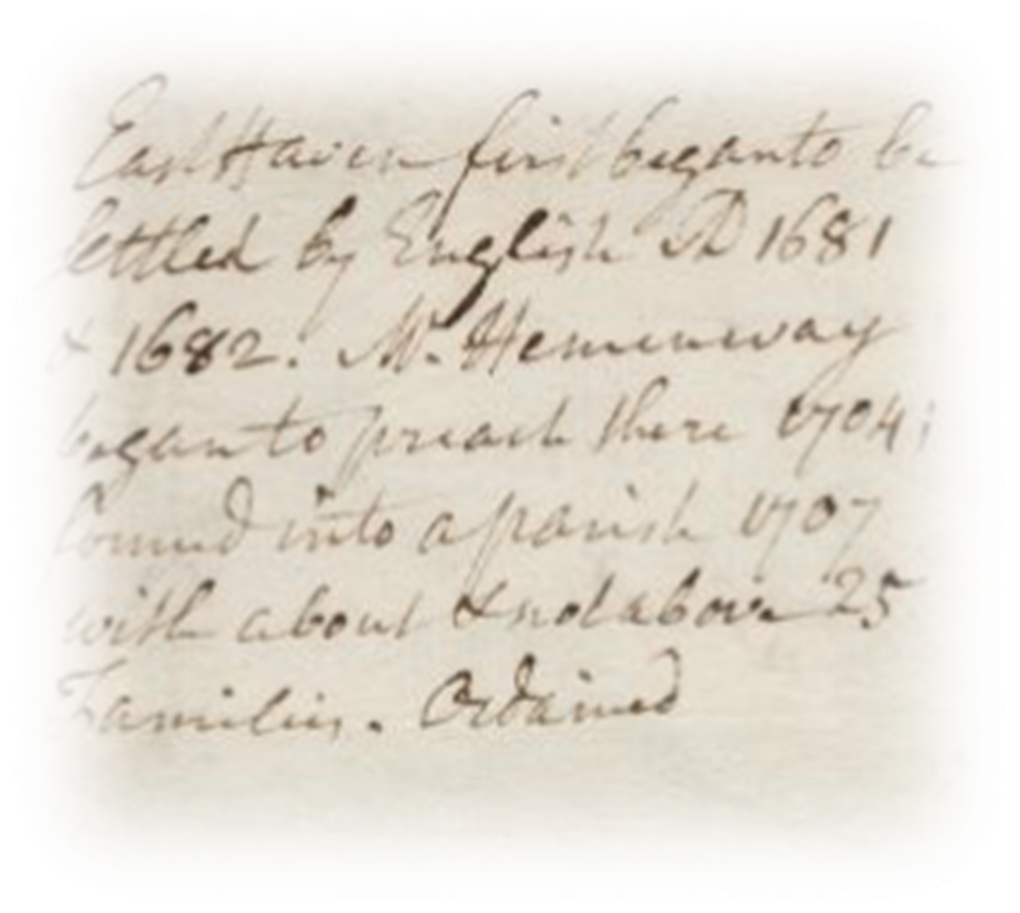 East Haven first began to be
settled by English AD 1681
& 1682. Mr. Hemenway
began to preach there 1704;
formed into a parish 1707
with about & not above 25
Families. Ordained